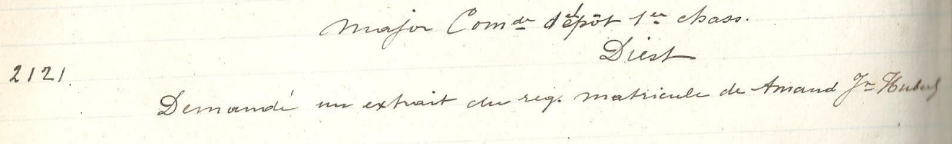 Major Com^dr dépôt 1^er chass.
Diest
2121.
Demandé un extrait du reg. matricule de Amand J^n Hubert